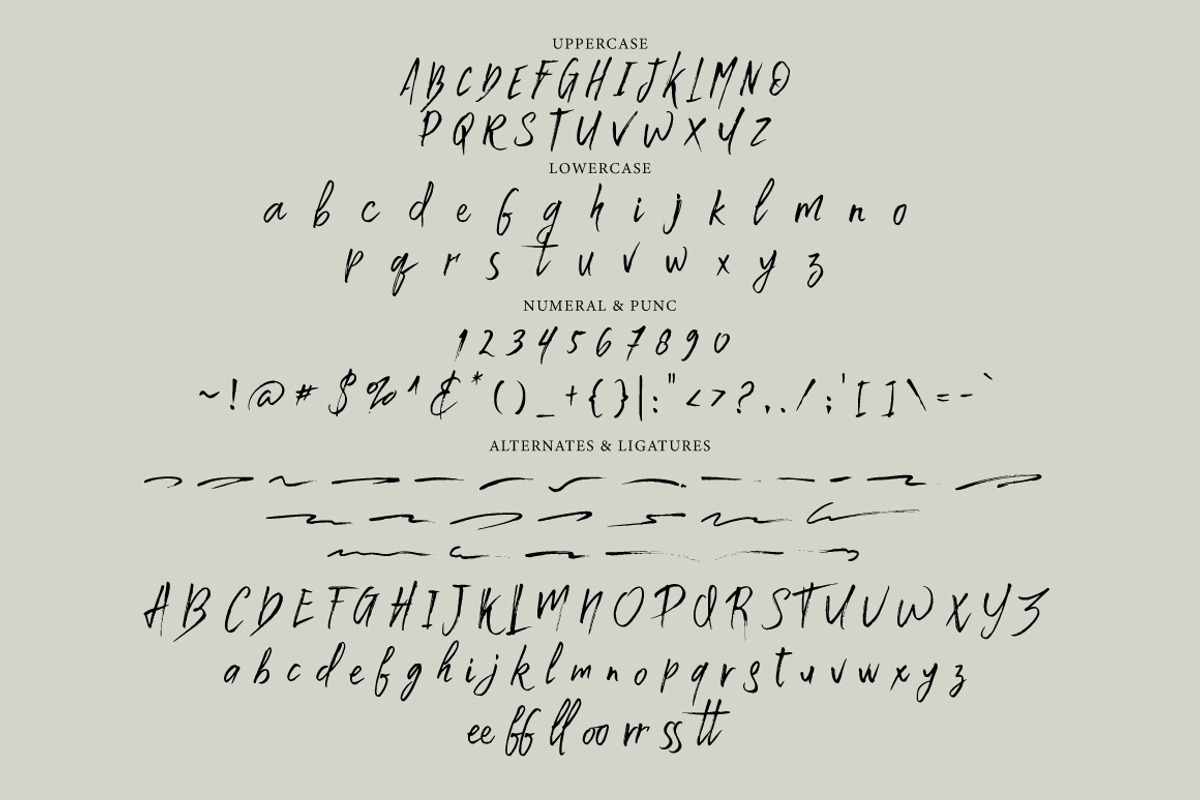 UPPERCASE
ABCDEFGHIJKLMNO
PQRSTUVWXYZ
LOWERCASE
a b c d e f g h i j k l m n o
p q r s t u v w x y z
NUMERAL & PUNC
1 2 3 4 5 6 7 8 9 0
~ ! @ # $ % ^ & * ( ) _ + { } | : " < > ? , . / ; ' [ ] \ = - `
ALTERNATES & LIGATURES
A B C D E F G H I J K L M N O P Q R S T U V W X Y Z
a b c d e f g h i j k l m n o p q r s t u v w x y z
ee ff ll oo rr ss tt